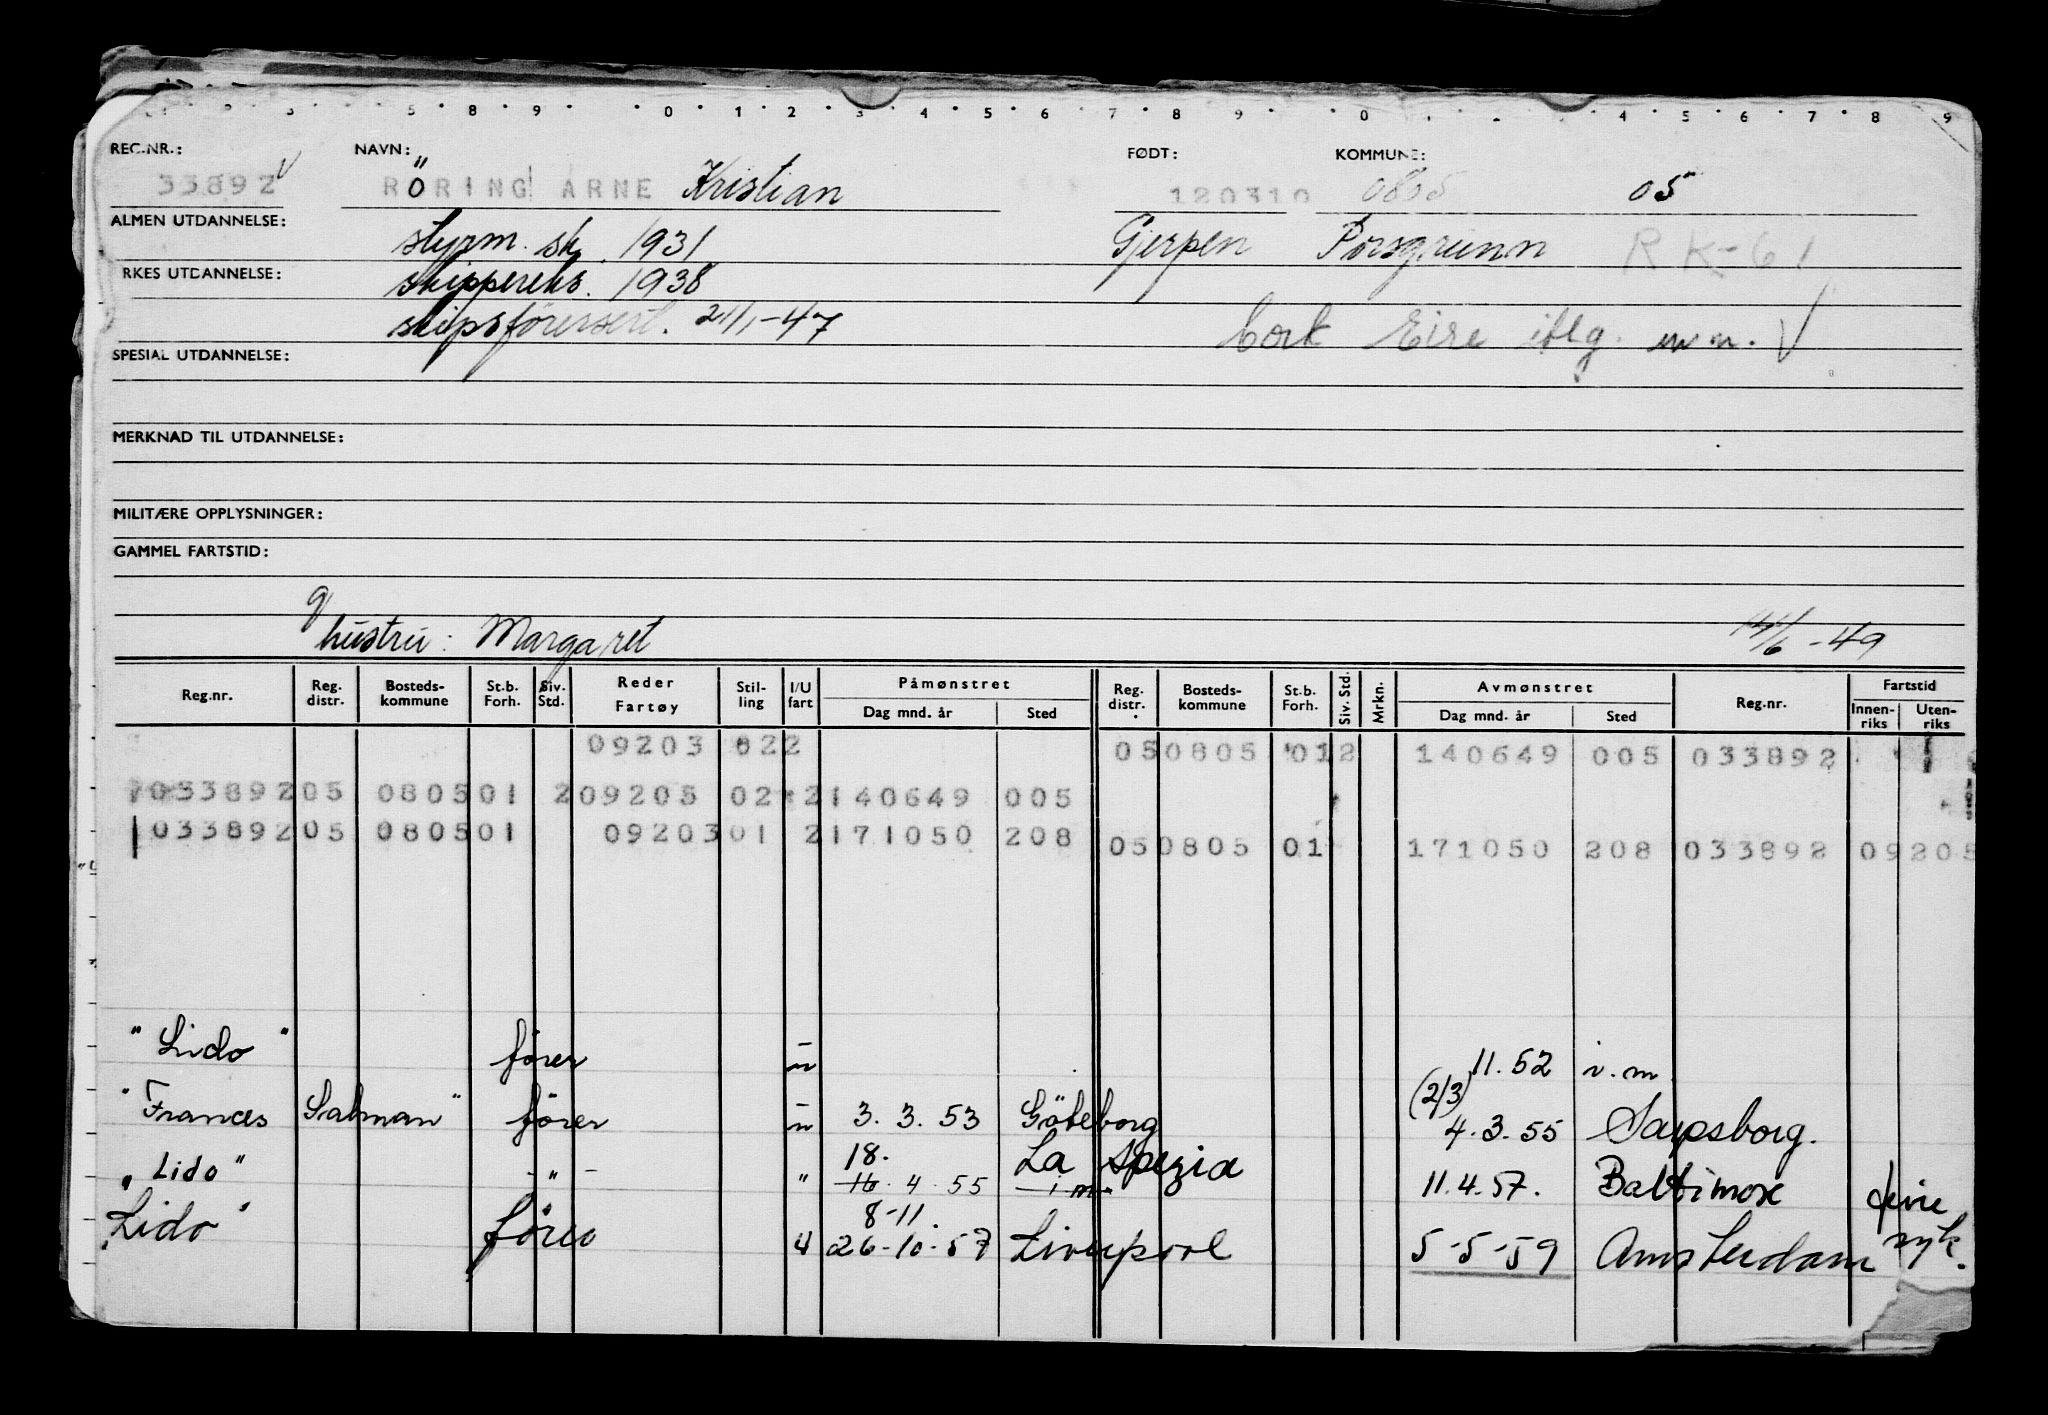 5 8 9 0 1 2 3 4 5 6 7 8 9 0 4 5 6 7 8 9
REG.NR.: NAVN: FØDT: KOMMUNE:
33892 RÖRING ARNE Kristian 120310 0805 05
ALMEN UTDANNELSE: styrm. sk. 1931 Gjerpen Porsgrunn RK-61
RKES UTDANNELSE: skippereks. 1938
skipsförersert. 21/1-47 Cork Eire iflg. m.m. V
SPESIAL UTDANNELSE:
MERKNAD TIL UTDANNELSE:
MILITÆRE OPPLYSNINGER:
GAMMEL FARTSTID:
g hustru: Margaret 14/6-49
Reg.nr. Reg. distr. Bosteds- kommune St.b. Forh. Siv. Std. Reder Fartøy Stil- ling I/U fart Påmønstret Dag mnd. år Sted Reg. distr. Bosteds- kommune St.b. Forh. Siv. Std. Mrkn. Avmønstret Dag mnd. år Sted Reg.nr. Fartstid Innen- riks Uten- riks
09203 022 050805 012 140649 005 033892
03389205 080501 209205 02 2140649 005
03389205 080501 0920301 2171050 208 050805 01 171050 208 033892 09205
"Lido" förer u 11.52 i.m
"Frances Salman" förer u 3.3.53 Göteborg (2/3) 4.3.55 Sarpsborg.
"Lido" - " - " 18. 16.4.55 La Spezia i m 11.4.57. Baltimore
Lido" förer u 8-11. 26-10-57 Liverpool 5-5-59 Amsterdam syk.